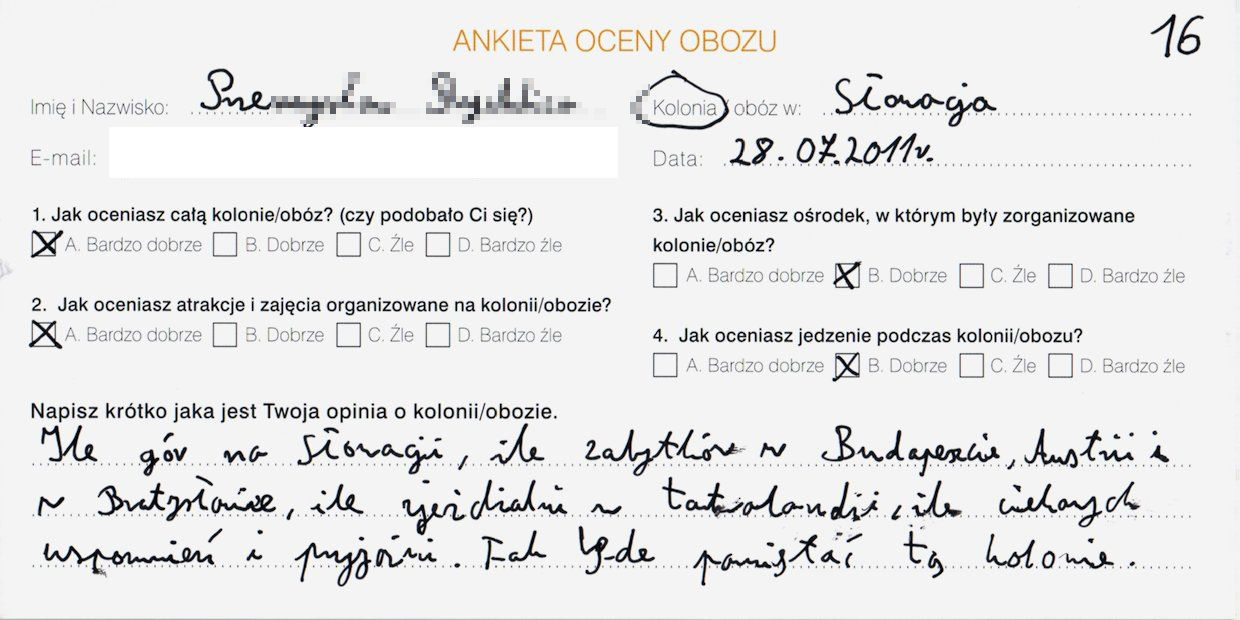 ANKIETA OCENY OBOZU
16
Imię i Nazwisko:
Kolonia / obóz w: Słowacja
E-mail:
Data: 28.07.2011r.
1. Jak oceniasz całą kolonie/obóz? (czy podobało Ci się?)
A. Bardzo dobrze B. Dobrze C. Źle D. Bardzo źle
2. Jak oceniasz atrakcje i zajęcia organizowane na kolonii/obozie?
A. Bardzo dobrze B. Dobrze C. Źle D. Bardzo źle
3. Jak oceniasz ośrodek, w którym były zorganizowane
kolonie/obóz?
A. Bardzo dobrze B. Dobrze C. Źle D. Bardzo źle
4. Jak oceniasz jedzenie podczas kolonii/obozu?
A. Bardzo dobrze B. Dobrze C. Źle D. Bardzo źle
Napisz krótko jaka jest Twoja opinia o kolonii/obozie.
Ile gór na Słowacji, ile zabytków w Budapeszcie, Austrii i
w Bratysławie, ile zjeżdżalni w tatralandii, ile ciekawych
wspomnień i przyjaźni. Tak będe pamiętać tą kolonie.